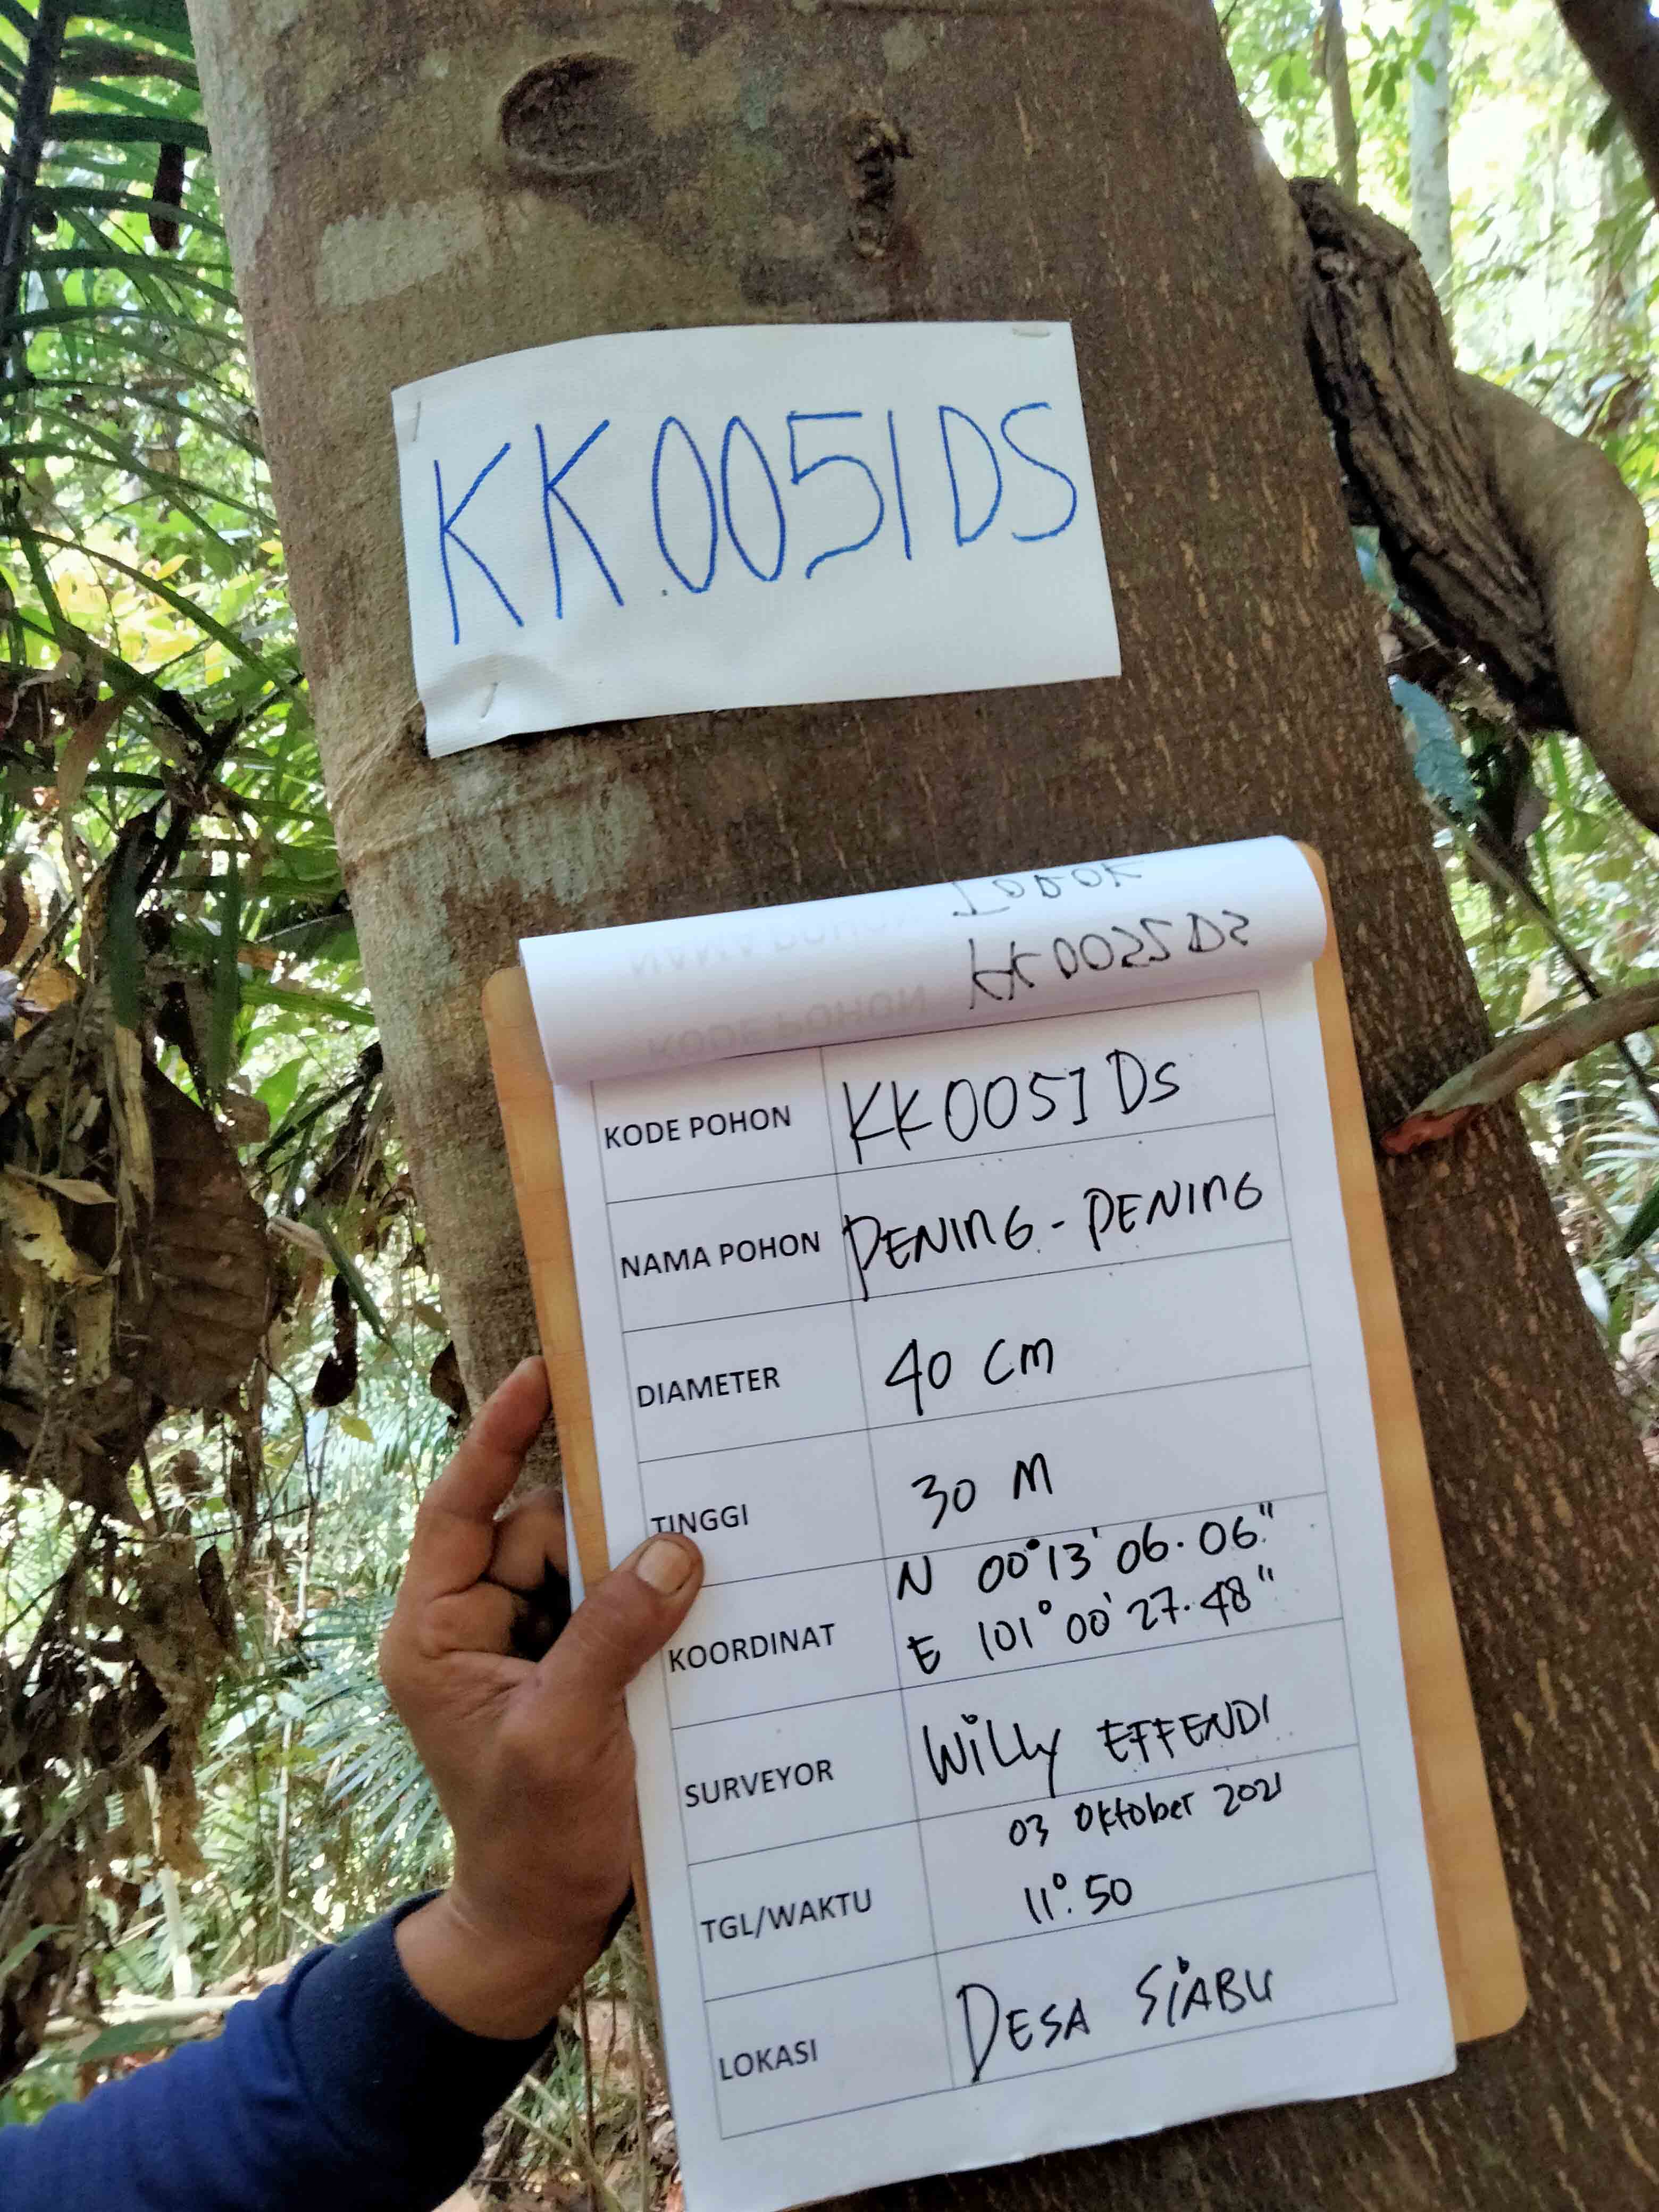 KK.0051DS
KODE POHON KK0051 Ds
NAMA POHON PENING - PENING
DIAMETER 40 cm
TINGGI 30 M
KOORDINAT N 00°13'06.06"
E 101°00'27.48"
SURVEYOR Willy EFFENDI
TGL/WAKTU 03 Oktober 2021
11°.50
LOKASI DESA SIABU